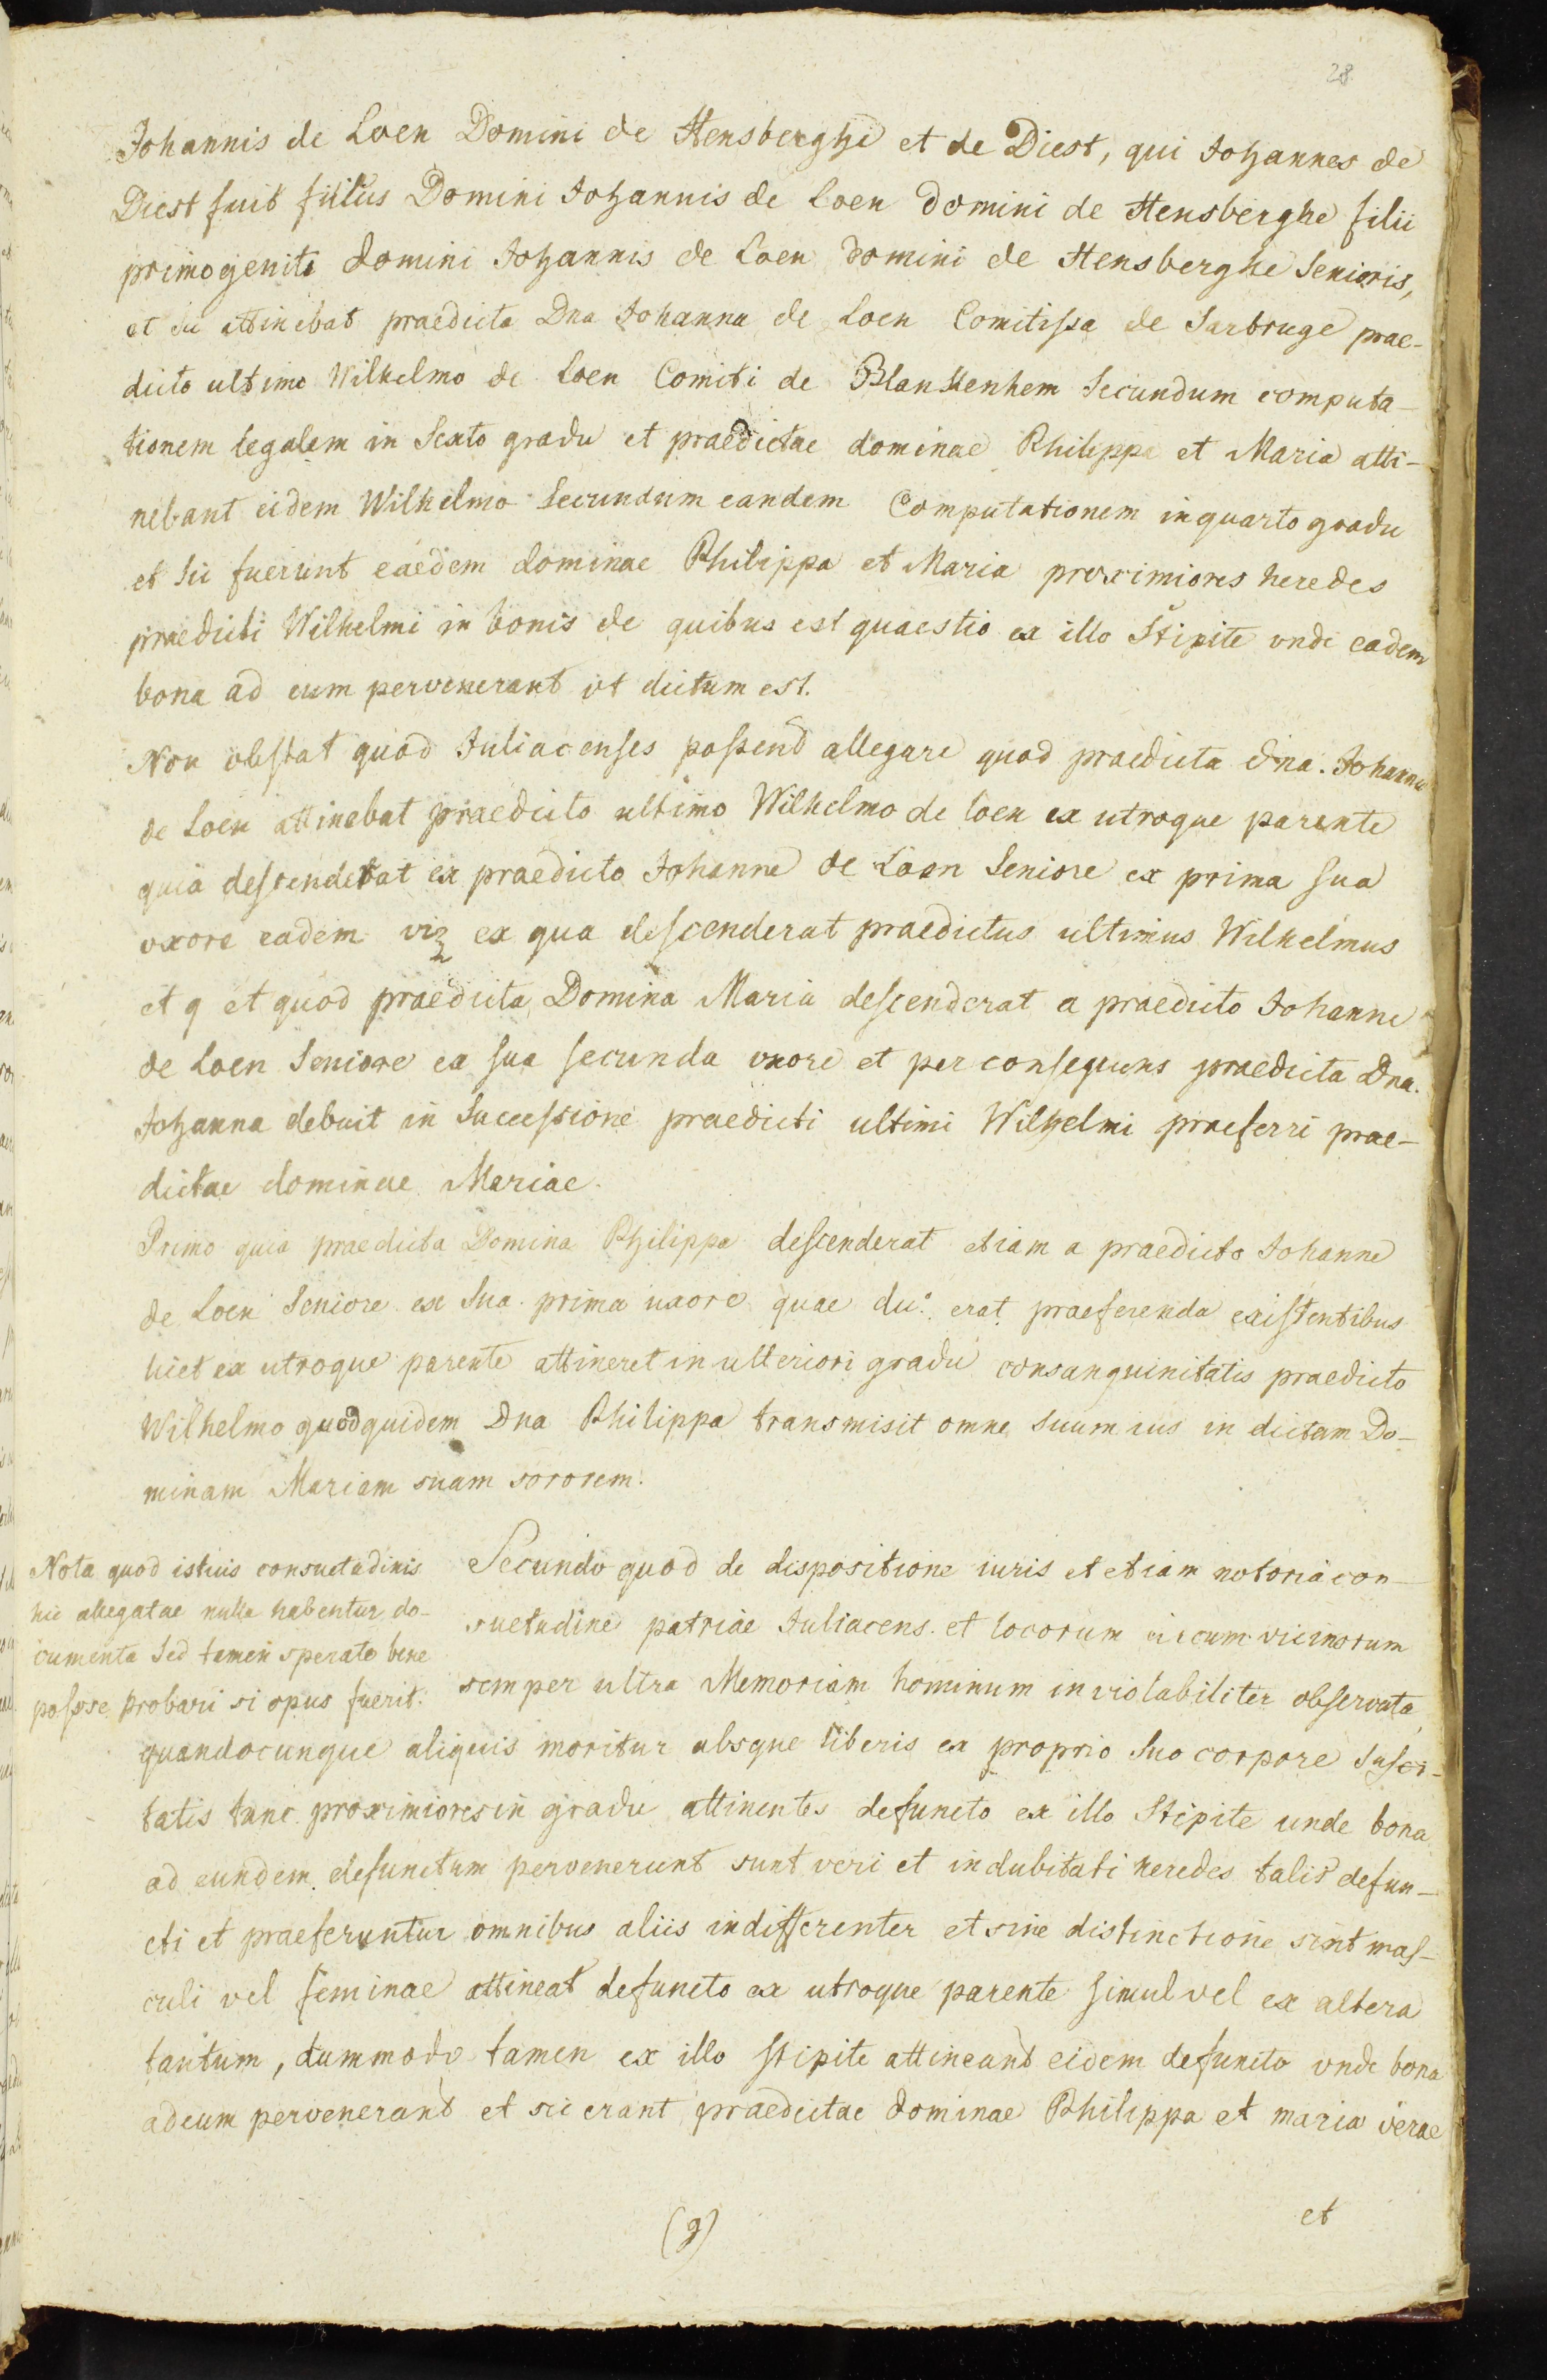 28
Johannis de Loen Domini de Hensberghe et de Diest, qui Johannes de
Diest fuit filius Domini Johannis de Loen Domini de Hensberghe filii
primogeniti domini Johannis de Loen domini de Hensberghe Senioris,
et sic attinebat praedicta Dna Johanna de Loen Comitissa de Sarbruge prae-
dicto ultimo Wilhelmo de Loen Comiti de Blanckenhem Secundum computa-
tionem legalem in Sexto gradu et praedictae dominae Philippa et Maria atti-
nebant eidem Wilhelmo Secundum eandem Computationem in quarto gradu
et sic fuerunt eaedem dominae Philippa et Maria proximiores heredes
praedicti Wilhelmi in bonis de quibus est quaestio ex illo Stipite unde eadem
bona ad eum pervenerant ut dictum est.
Non obstat quod Juliacenses possent allegare quod praedicta dna. Johanna
de Loen attinebat praedicto ultimo Wilhelmo de loen ex utroque parente
quia descenderat ex praedicto Johanne de Loen Seniore ex prima sua
uxore eadem viz ex qua descenderat praedictus ultimus Wilhelmus
et q et quod praedicta Domina Maria descenderat a praedicto Johanne
de Loen Seniore ex sua secunda uxore et per consequens praedicta Dna.
Johanna debuit in Successione praedicti ultimi Wilhelmi praeferri prae-
dictae dominae Mariae.
Primo quia praedicta Domina Philippa descenderat etiam a praedicto Johanne
de Loen Seniore ex Sua prima uxore quae erat praeferenda existentibus
licet ex utroque parente attineret in ulteriori gradu consanguinitatis praedicto
Wilhelmo quodquidem Dna Philippa transmisit omne suum ius in dictam Do-
minam Mariam suam sororem.
Nota quod istius consuetudinis
hic allegatae nulla habentur do-
cumenta Sed tamen sperato bene
posse probari si opus fuerit.
Secundo quod de dispositione iuris et etiam notoria con-
suetudine patriae Juliacens. et locorum circumvicinorum
semper ultra Memoriam hominum inviolabiliter observata
quandocunque aliquis moritur absque liberis ex proprio suo corpore susci-
tatis tunc proximiores in gradu attinentes defuncto ex illo Stipite unde bona
ad eundem defunctum pervenerunt sunt veri et indubitati heredes talis defun-
cti et praeferuntur omnibus aliis indifferenter et sine distinctione sint mas-
culi vel feminae attineat defuncto ex utroque parente simul vel ex altera
tantum, dummodo tamen ex illo stipite attineant eidem defuncto unde bona
ad eum pervenerant et sic erant praedictae dominae Philippa et maria verae
(g)
et